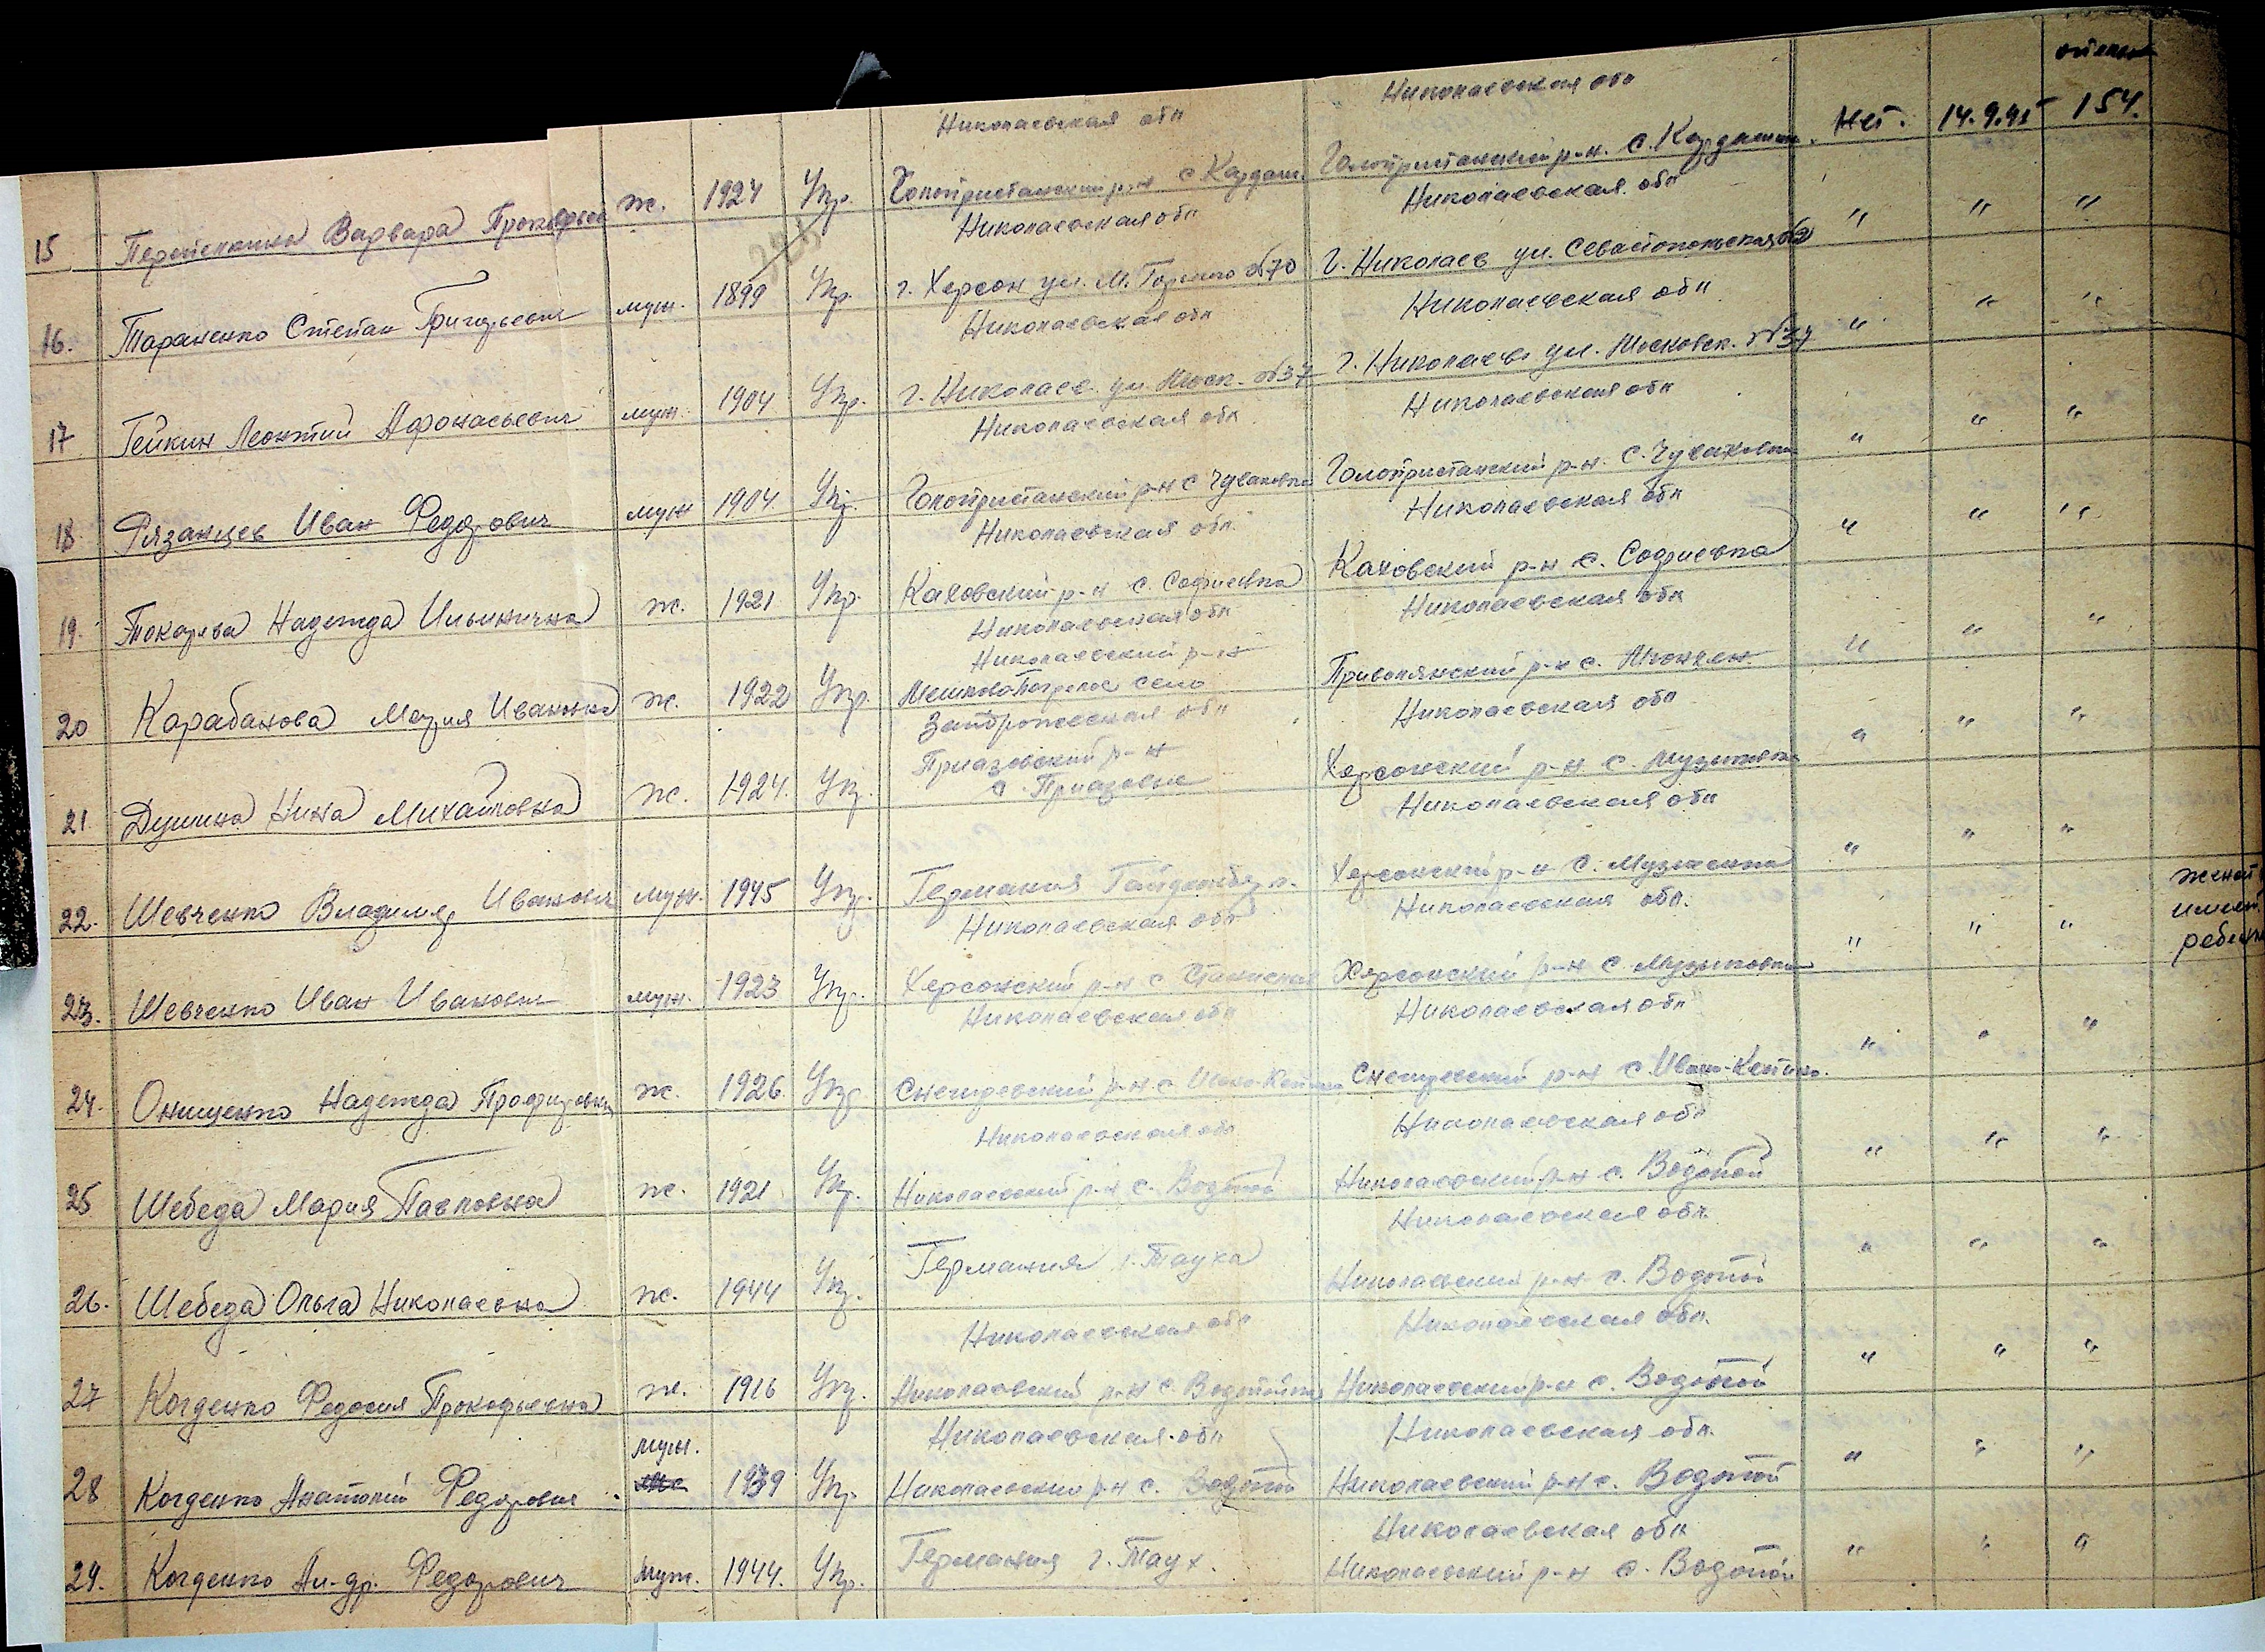 Николаевская обл Николаевская обл
15 Варвара ж. 1924 Укр. Голопристанский р-н с Кардаш. Голопристанский р-н. с. Кардашин. Нет. 14.9.45 154.
Николаевская обл Николаевская обл
16. Тараненко Степан Григорьевич муж. 1899 Укр. г. Херсон ул. М. Горького №70 г. Николаев ул. Севастопольская " " "
Николаевская обл Николаевская обл
17 Гейкин Леонтий Афонасьевич муж. 1904 Укр. г. Николаев ул. Моск. №37 г. Николаев ул. Московск. №37 " " "
Николаевская обл Николаевская обл
18 Рязанцев Иван Федорович муж 1904. Укр. Голопристанский р-н с Голопристанский р-н. с. " " "
Николаевская обл. Николаевская обл
19. Токарева Надежда Ильинична ж. 1921 Укр. Каховский р-н с. Софиевка Каховский р-н с. Софиевка " " "
Николаевская обл Николаевская обл
Николаевский р-н
20 Карабанова Мария Ивановна ж. 1922 Укр. село р-н с. " " "
Запорожская обл Николаевская обл
Приазовский р-н
21. Душина Нина Михайловна ж. 1924. Укр. с. Приазовье Херсонский р-н с. Музыковка " " "
Николаевская обл
22. Шевченко Владимир Иванович муж. 1945 Укр. Германия Херсонский р-н с. " " " женой
Николаевская обл Николаевская обл.
23. Шевченко Иван Иванович муж. 1923 Укр. Херсонский р-н с. Херсонский р-н с. Музыковка " " "
Николаевская обл Николаевская обл
24. Онищенко Надежда ж. 1926. Укр. Снегиревский р-н с. Снегиревский р-н с. " " "
Николаевская обл Николаевская обл
25 Шебеда Мария Павловна ж. 1921 Укр. Николаевский р-н с. Водопой Николаевский р-н с. Водопой " " "
Николаевская обл.
26. Шебеда Ольга Николаевна ж. 1944 Укр. Германия г. Тауха Николаевский р-н с. Водопой " " "
Николаевская обл Николаевская обл.
27 Когденко Федосия Прокофьевна ж. 1916 Укр. Николаевский р-н с. Николаевский р-н с. Водопой " " "
муж. Николаевская обл Николаевская обл.
28 Когденко Анатолий Федорович 1939 Укр. Николаевский р-н с. Водопой Николаевский р-н с. Водопой " " "
Николаевская обл
29. Когденко Ал-др. Федорович муж. 1944. Укр. Германия г. Таух. Николаевский р-н с. Водопой " " "